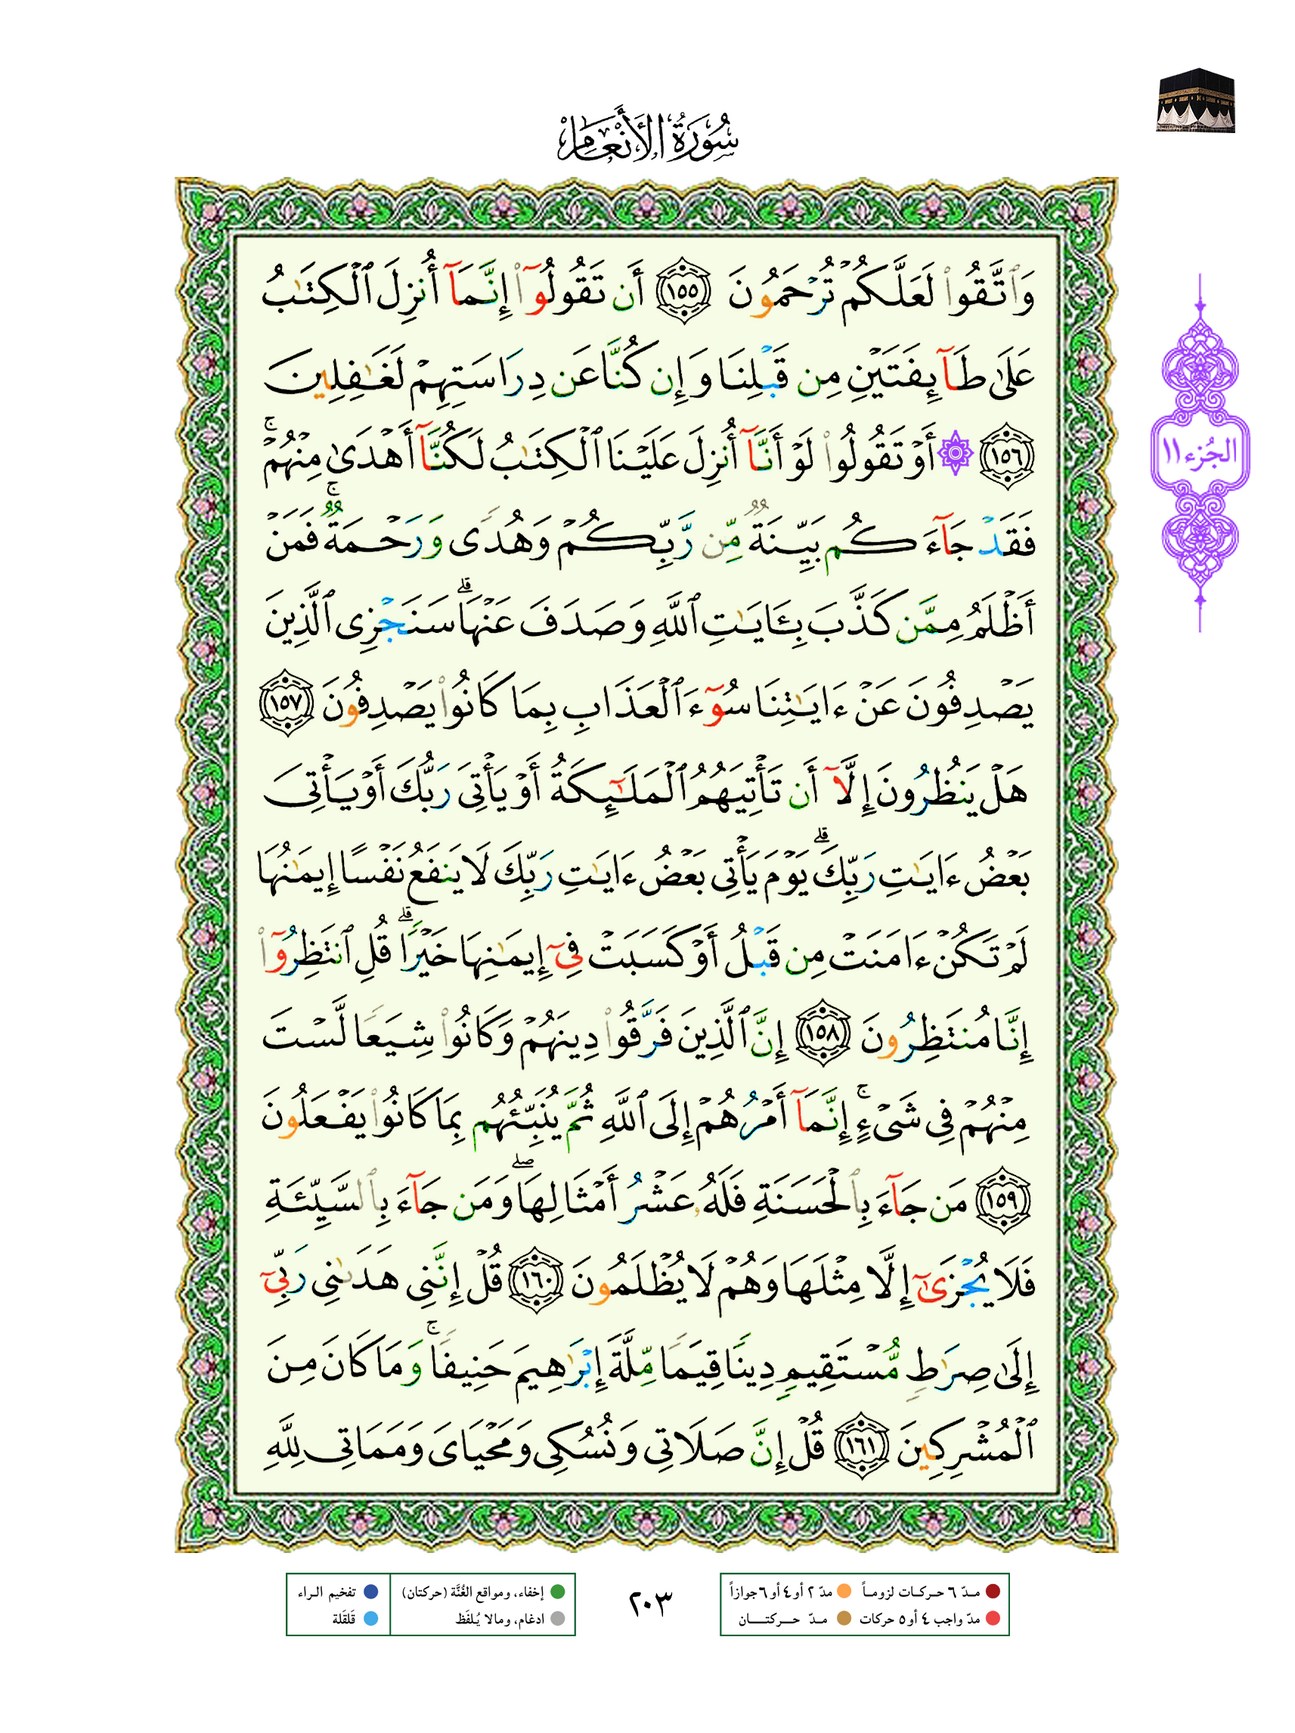 سُورَةُ الأَنْعَامِ
وَٱتَّقُوا۟ لَعَلَّكُمْ تُرْحَمُونَ ١٥٥ أَن تَقُولُوٓا۟ إِنَّمَآ أُنزِلَ ٱلْكِتَٰبُ
عَلَىٰ طَآئِفَتَيْنِ مِن قَبْلِنَا وَإِن كُنَّا عَن دِرَاسَتِهِمْ لَغَٰفِلِينَ
١٥٦ أَوْ تَقُولُوا۟ لَوْ أَنَّآ أُنزِلَ عَلَيْنَا ٱلْكِتَٰبُ لَكُنَّآ أَهْدَىٰ مِنْهُمْ ۚ
فَقَدْ جَآءَكُم بَيِّنَةٌ مِّن رَّبِّكُمْ وَهُدًى وَرَحْمَةٌ ۚ فَمَنْ
أَظْلَمُ مِمَّن كَذَّبَ بِـَٔايَٰتِ ٱللَّهِ وَصَدَفَ عَنْهَا ۗ سَنَجْزِى ٱلَّذِينَ
يَصْدِفُونَ عَنْ ءَايَٰتِنَا سُوٓءَ ٱلْعَذَابِ بِمَا كَانُوا۟ يَصْدِفُونَ ١٥٧
هَلْ يَنظُرُونَ إِلَّآ أَن تَأْتِيَهُمُ ٱلْمَلَٰٓئِكَةُ أَوْ يَأْتِىَ رَبُّكَ أَوْ يَأْتِىَ
بَعْضُ ءَايَٰتِ رَبِّكَ ۗ يَوْمَ يَأْتِى بَعْضُ ءَايَٰتِ رَبِّكَ لَا يَنفَعُ نَفْسًا إِيمَٰنُهَا
لَمْ تَكُنْ ءَامَنَتْ مِن قَبْلُ أَوْ كَسَبَتْ فِىٓ إِيمَٰنِهَا خَيْرًا ۗ قُلِ ٱنتَظِرُوٓا۟
إِنَّا مُنتَظِرُونَ ١٥٨ إِنَّ ٱلَّذِينَ فَرَّقُوا۟ دِينَهُمْ وَكَانُوا۟ شِيَعًا لَّسْتَ
مِنْهُمْ فِى شَىْءٍ ۚ إِنَّمَآ أَمْرُهُمْ إِلَى ٱللَّهِ ثُمَّ يُنَبِّئُهُم بِمَا كَانُوا۟ يَفْعَلُونَ
١٥٩ مَن جَآءَ بِٱلْحَسَنَةِ فَلَهُۥ عَشْرُ أَمْثَالِهَا ۖ وَمَن جَآءَ بِٱلسَّيِّئَةِ
فَلَا يُجْزَىٰٓ إِلَّا مِثْلَهَا وَهُمْ لَا يُظْلَمُونَ ١٦٠ قُلْ إِنَّنِى هَدَىٰنِى رَبِّىٓ
إِلَىٰ صِرَٰطٍ مُّسْتَقِيمٍ دِينًا قِيَمًا مِّلَّةَ إِبْرَٰهِيمَ حَنِيفًا ۚ وَمَا كَانَ مِنَ
ٱلْمُشْرِكِينَ ١٦١ قُلْ إِنَّ صَلَاتِى وَنُسُكِى وَمَحْيَاىَ وَمَمَاتِى لِلَّهِ
الجُزء ١١
مـدّ ٦ حـركـات لزومـاً
مدّ ٢ أو ٤ أو ٦ جوازاً
مدّ واجب ٤ أو ٥ حركات
مـدّ حـركتـان
٢٠٣
إخفاء، ومواقع الغُنَّة (حركتان)
ادغام، ومالا يُلفَظ
تفخيم الراء
قلقلة